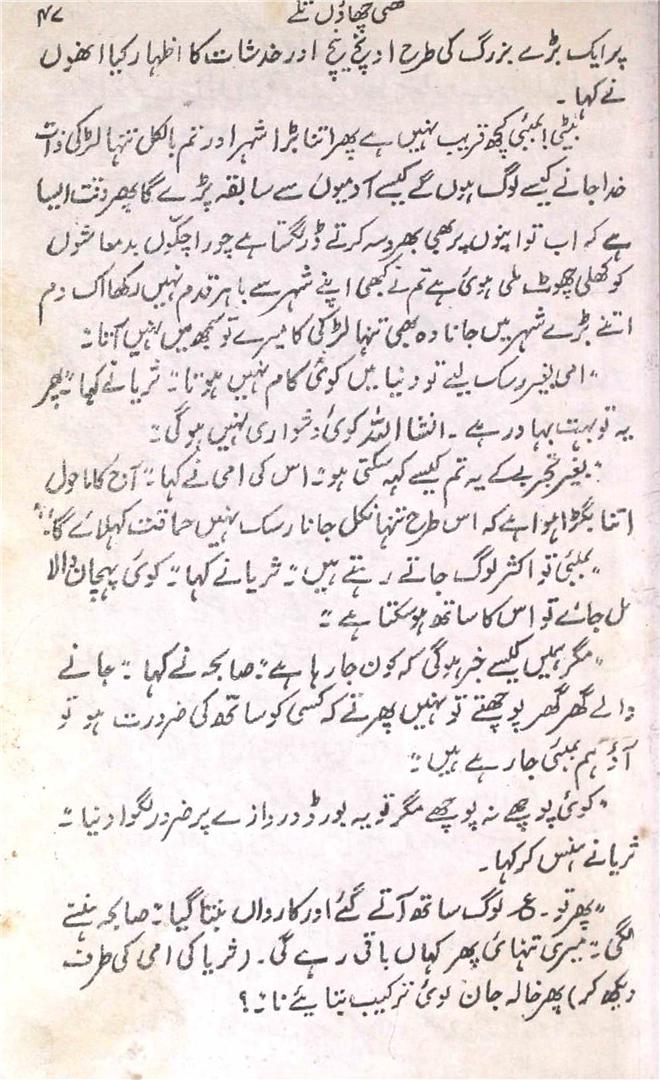 گھنی چھاؤں تلے ۴۷
پر ایک بڑے بزرگ کی طرح اونچ نیچ اور خدشات کا اظہار کیا انھوں
نے کہا۔
بیٹی! بمبئی کچھ قریب نہیں ہے پھر اتنا بڑا شہر اور تم بالکل تنہا لڑکی ذات
خدا جانے کیسے لوگ ہوں گے کیسے آدمیوں سے سابقہ پڑے گا پھر وقت ایسا
ہے کہ اب تو اپنوں پر بھی بھروسہ کرتے ڈر لگتا ہے چور اچکّوں بدمعاشوں
کو کھلی چھوٹ ملی ہوئی ہے تم نے کبھی اپنے شہر سے باہر قدم نہیں رکھا اک دم
اتنے بڑے شہر میں جانا وہ بھی تنہا لڑکی کا میرے تو سمجھ میں نہیں آتا۔"
"امی بغیر رسک لیے تو دنیا میں کوئی کام نہیں ہوتا۔" ثریا نے کہا "پھر
یہ تو بہت بہادر ہے۔ انشا اللہ کوئی دشواری نہیں ہوگی۔"
"بغیر تجربے کے یہ تم کیسے کہہ سکتی ہو۔" اس کی امی نے کہا "آج کا ماحول
اتنا بگڑا ہوا ہے کہ اس طرح تنہا نکل جانا رسک نہیں حماقت کہلائے گا۔"
"بمبئی تو اکثر لوگ جاتے رہتے ہیں۔" ثریا نے کہا "کوئی پہچان والا
مل جائے تو اس کا ساتھ ہو سکتا ہے۔"
"مگر ہمیں کیسے خبر ہوگی کہ کون جا رہا ہے۔" صابحہ نے کہا "جانے
والے گھر گھر پوچھتے تو نہیں پھرتے کہ کسی کو ساتھ کی ضرورت ہو تو
آؤ ہم بمبئی جا رہے ہیں۔"
"کوئی پوچھے نہ پوچھے مگر تو یہ بورڈ دروازے پر ضرور لگوا دنیا۔"
ثریا نے ہنس کر کہا۔
"پھر تو۔ ع لوگ ساتھ آتے گئے اور کارواں بنتا گیا۔" صابحہ ہنسنے
لگی "میری تنہائی پھر کہاں باقی رہے گی۔ (ثریا کی امی کی طرف
دیکھ کر) پھر خالہ جان کوئی ترکیب بتائیے نا۔"؟